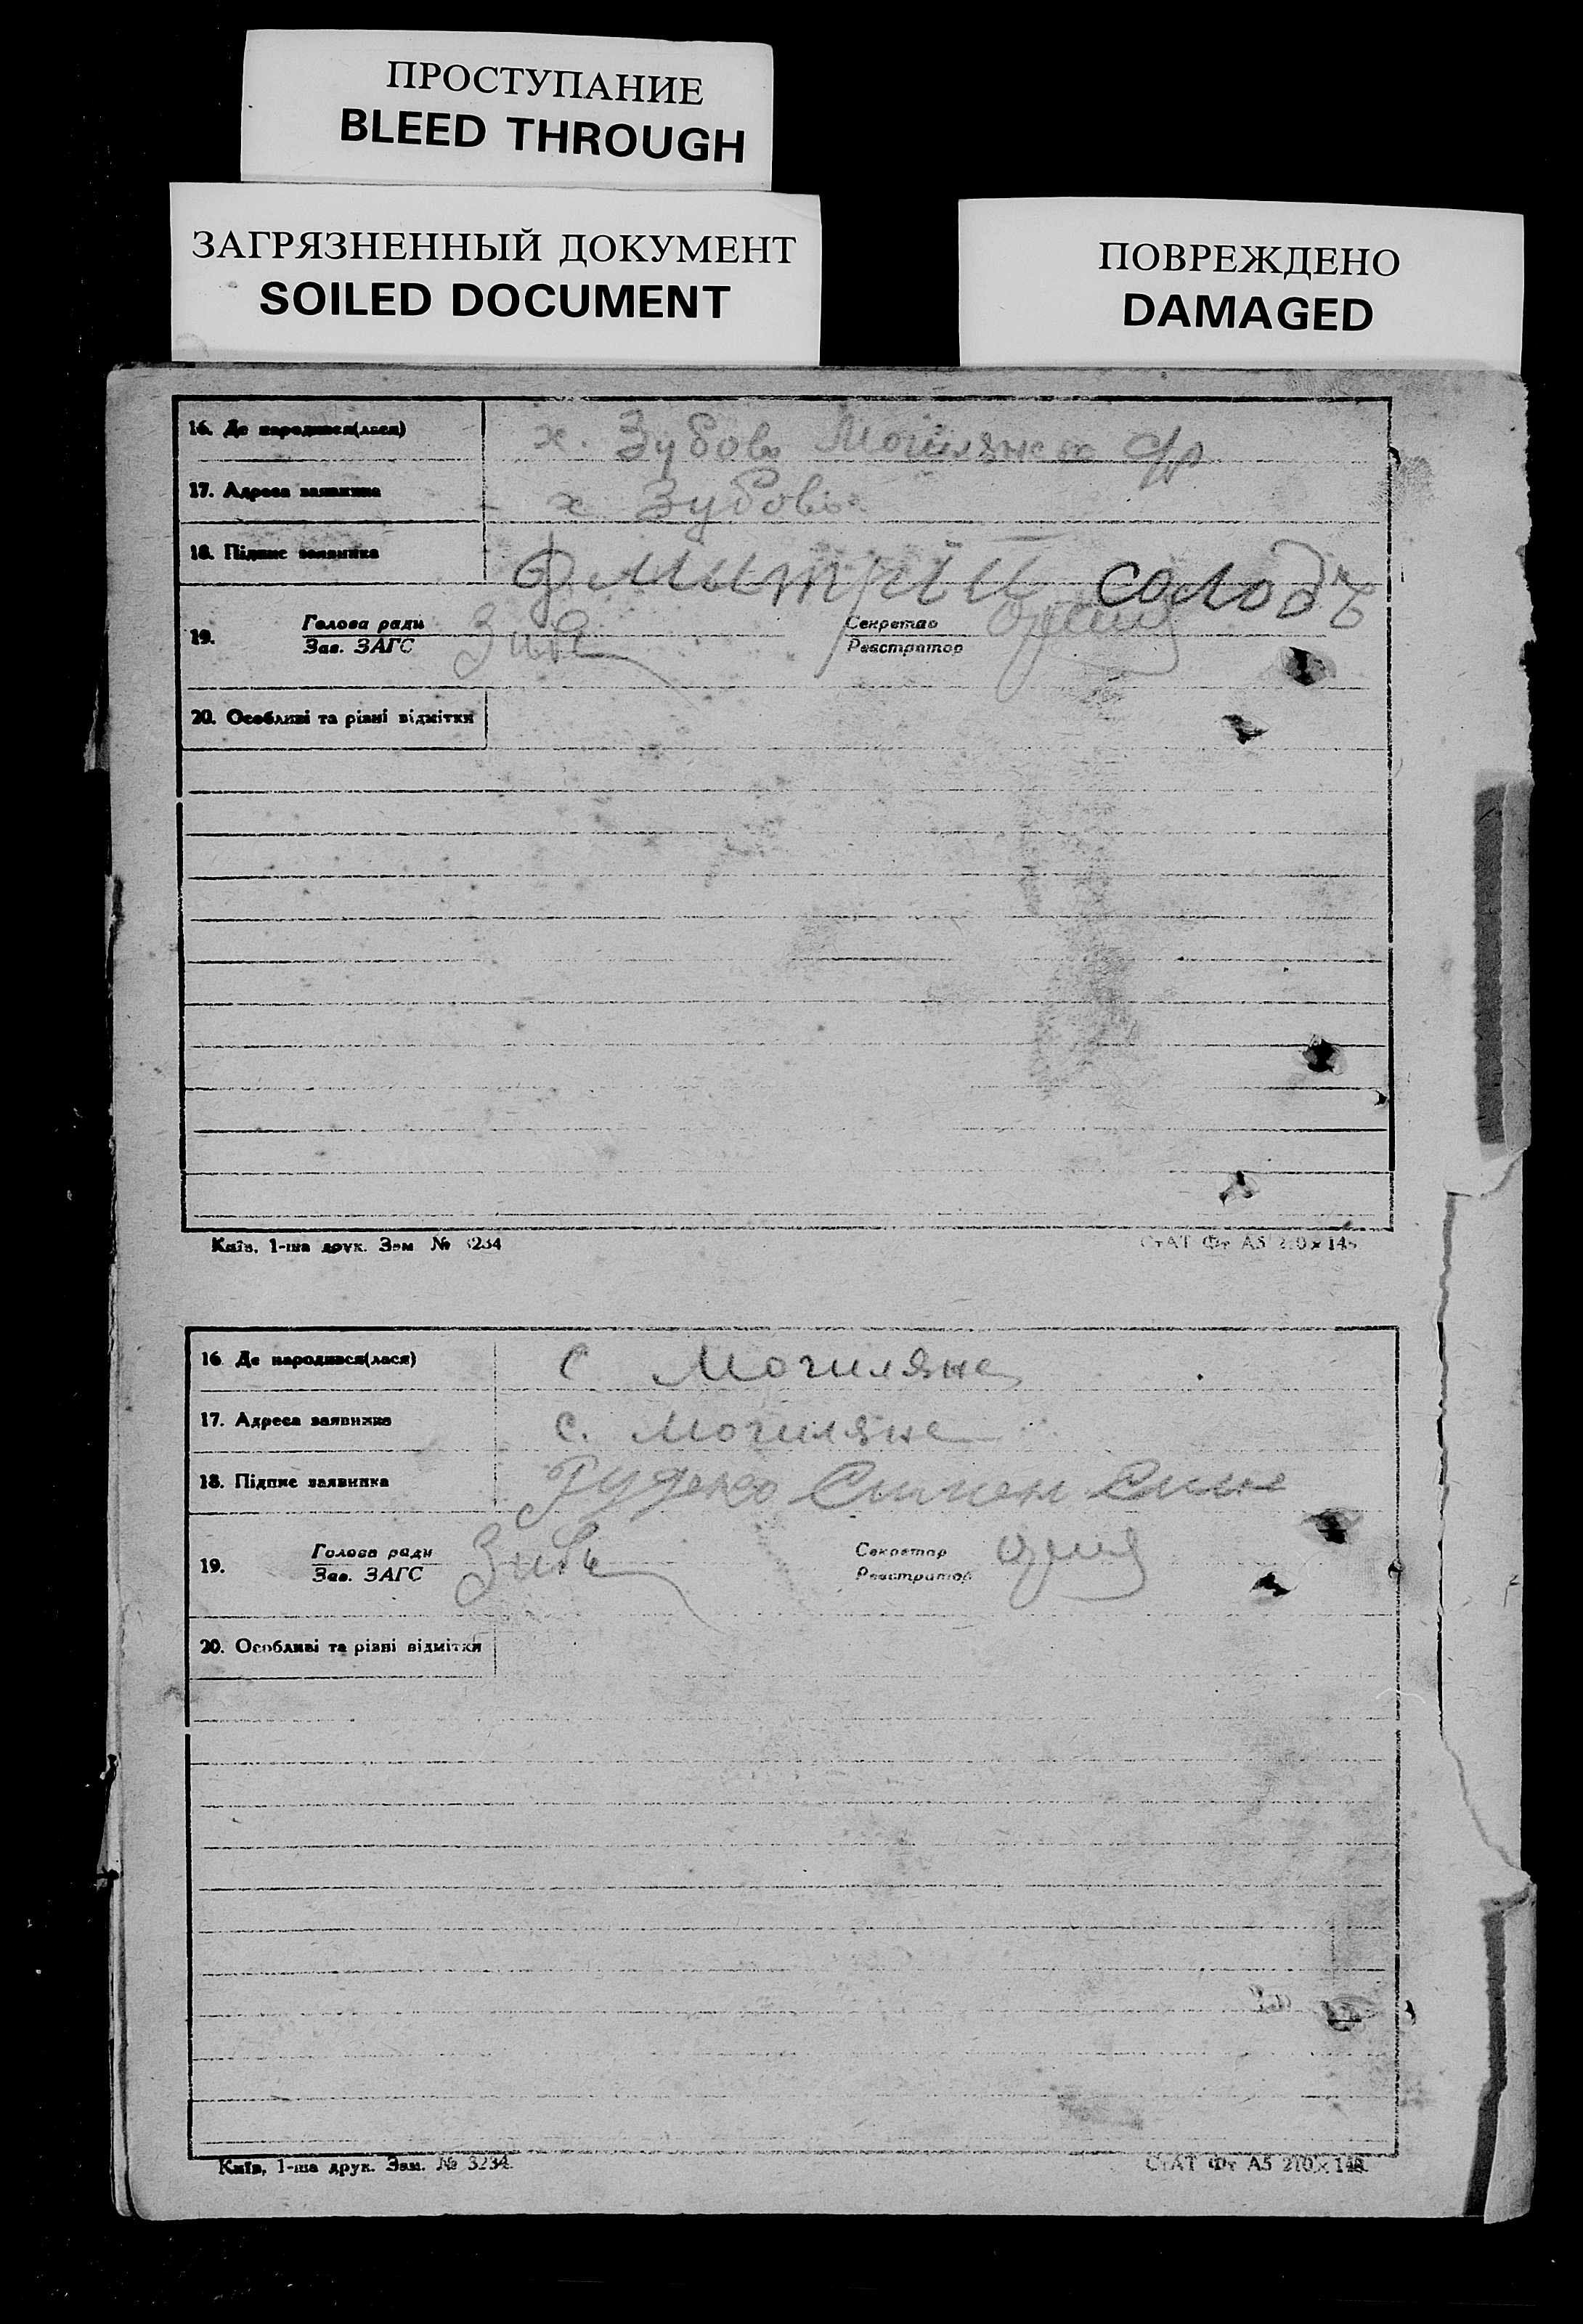 ПРОСТУПАНИЕ
BLEED THROUGH
ЗАГРЯЗНЕННЫЙ ДОКУМЕНТ
SOILED DOCUMENT
ПОВРЕЖДЕНО
DAMAGED
16. Де народився(лася) х. Зубов Могилянсько с/р
17. Адреса заявника х Зубов
18. Підпис заявника Дмитрий солодъ
19. Голова ради Секретар
Зав. ЗАГС Реєстратор
20. Особливі та різні відмітки
Київ, 1-ша друк. Зам № 3234 СтАТ Фт А5 210×148
16. Де народився(лася) С Могиляне
17. Адреса заявника с. Могиляне
18. Підпис заявника Рудеко Симен
19. Голова ради Секретар
Зав. ЗАГС Реєстратор
20. Особливі та різні відмітки
Київ, 1-ша друк. Зам. № 3234 СтАТ Фт А5 210×148